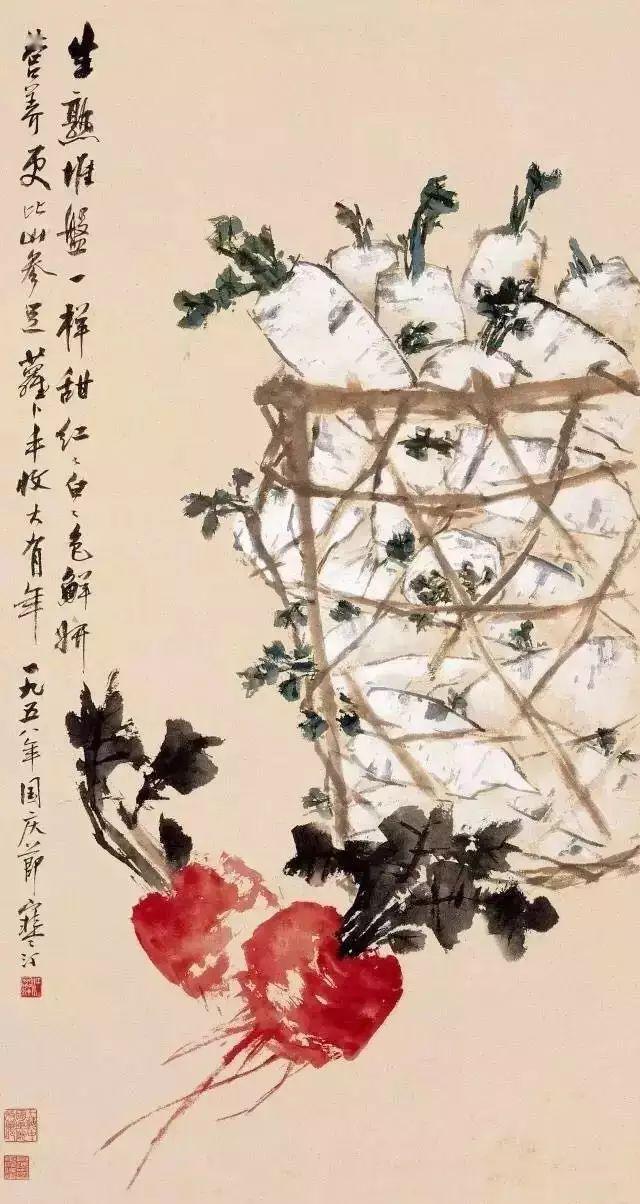 生熟堆盘一样甜红々白々色鲜妍
营养更比山参足萝卜丰收大有年 一九五八年国庆节寒汀